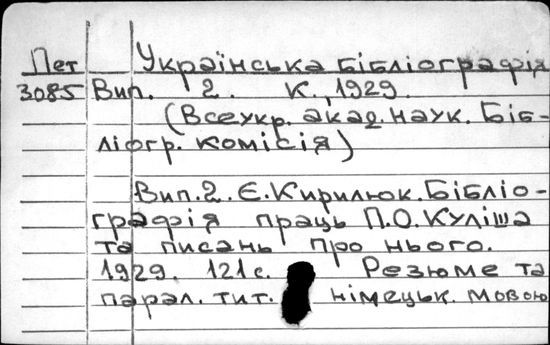 Пет Українська бібліографія
3085 Вип. 2. К., 1929.
(Всеукр. акад. наук. Біб-
ліогр. комісія)
Вип. 2. Є. Кирилюк. Бібліо-
графія праць П.О. Куліша
та писань про нього.
1929. 121 с. Резюме та
парал. тит. німецьк. мовою